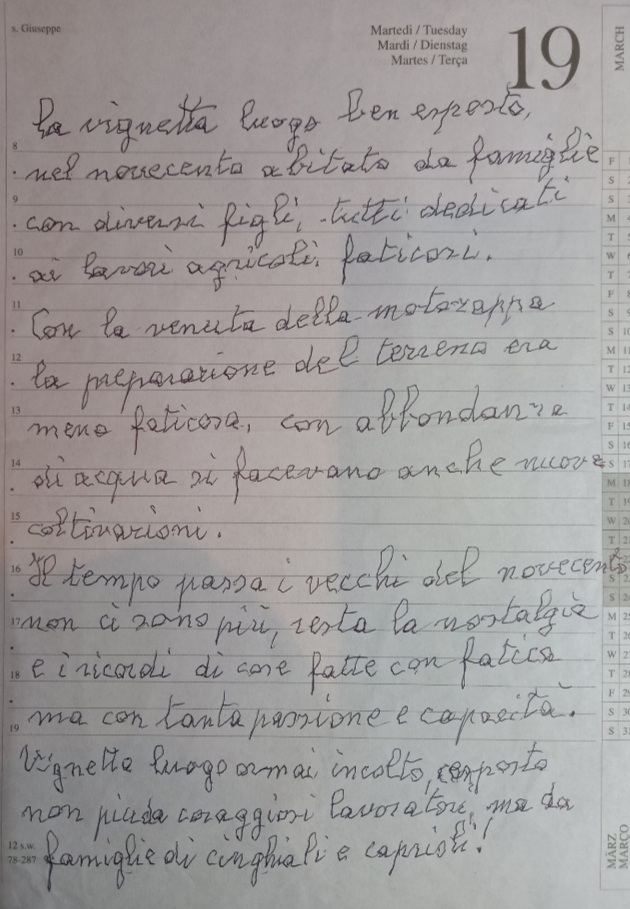 s. Giuseppe
Martedi / Tuesday
Mardi / Dienstag
Martes / Terça
19
MARCH
La vignetta luogo ben esposto,
8 nel novecento abitato da famiglie
9 con diversi figli, tutti dedicati
10 ai lavori agricoli faticosi.
11 Con la venuta della motozappa
12 la preparazione del terreno era
13 meno faticosa, con abbondanza
14 di acqua si facevano anche nuove
15 coltivazioni.
16 Il tempo passa i vecchi del novecento
17 non ci sono più, resta la nostalgia
18 e i ricordi di cose fatte con fatica
19 ma con tanta passione e capacità.
Vignetta luogo ormai incolto,
non più da coraggiosi lavoratori, ma da
famiglie di cinghiali e caprioli!
12 s.w.
78-287
MÄRZ
MARÇO